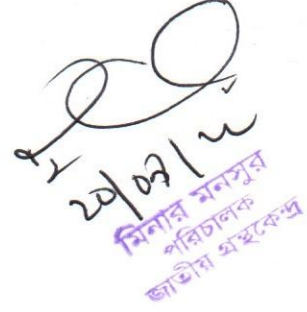 ২০/০৭/২২
মিনার মনসুর
পরিচালক
জাতীয় গ্রন্থকেন্দ্র